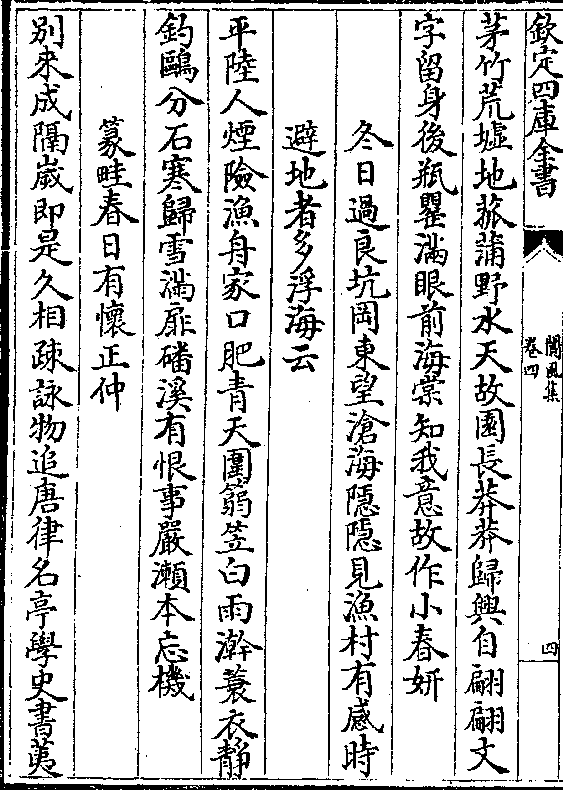 欽定四庫全書
閬風集
卷四
四
茅竹荒墟地菰蒲野水天故園長莽莽歸興自翩翩文
字留身後瓶罌滿眼前海棠知我意故作小春妍
冬日過良坑岡東望滄海隱隱見漁村有感時
避地者多浮海云
平陸人煙險漁舟家口肥青天圍箬笠白雨澣蓑衣靜
釣鷗分石寒歸雪滿扉磻溪有恨事嚴瀨本忘機
篆畦春日有懷正仲
別來成隔歲即是久相疎詠物追唐律名亭學史書荑